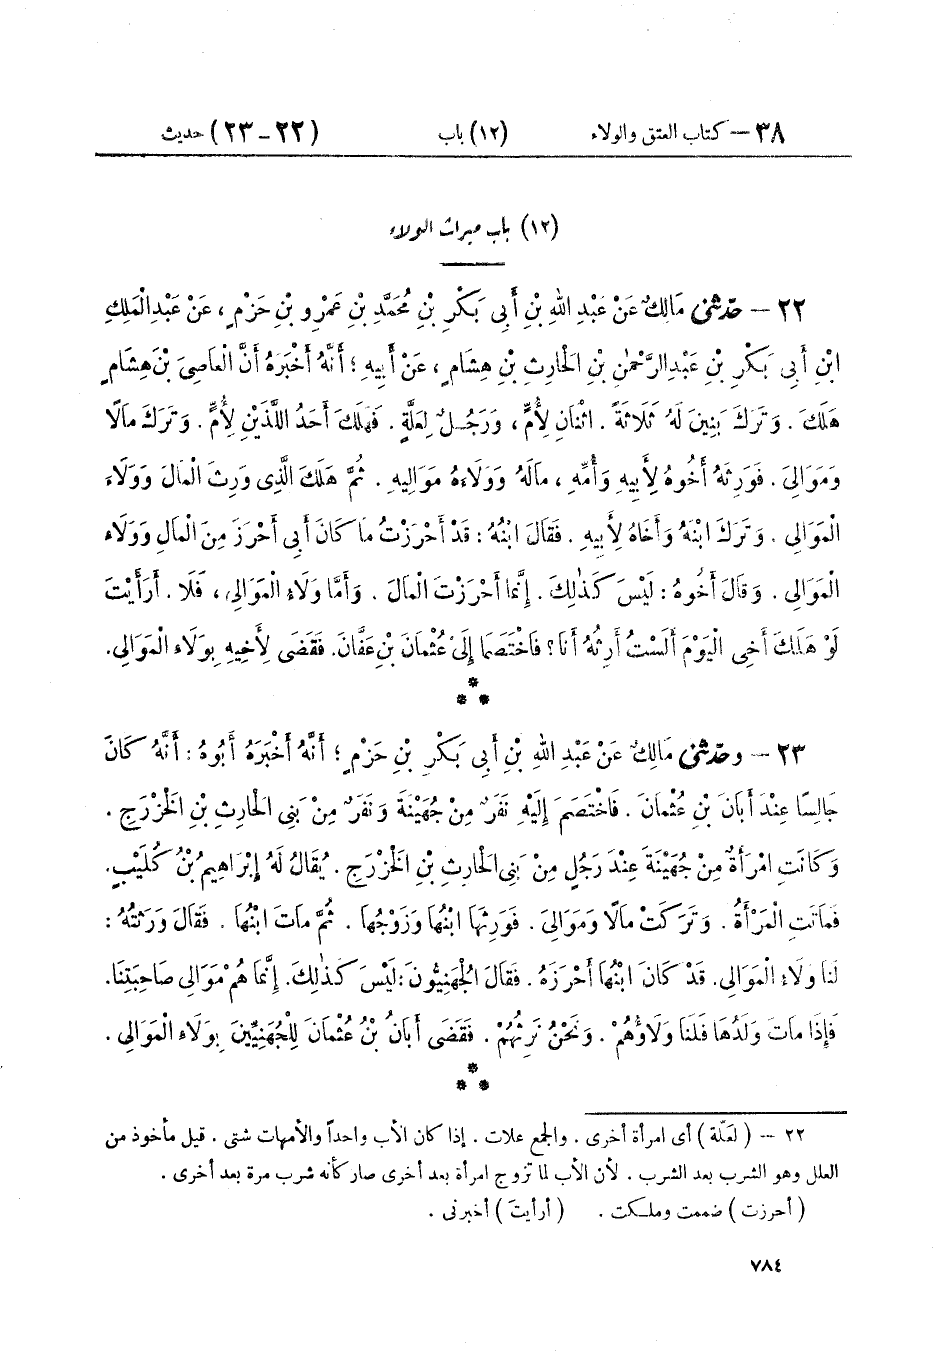 ٣٨ – كتاب العتق والولاء (١٢) باب (٢٢ – ٢٣) حديث
(١٢) باب ميراث الولاء
٢٢ – حَدَّثَنِي مَالِكٌ عَنْ عَبْدِ اللهِ بْنِ أَبِي بَكْرِ بْنِ مُحَمَّدِ بْنِ عَمْرِو بْنِ حَزْمٍ ، عَنْ عَبْدِ الْمَلِكِ
ابْنِ أَبِي بَكْرِ بْنِ عَبْدِ الرَّحْمٰنِ بْنِ الْحَارِثِ بْنِ هِشَامٍ ، عَنْ أَبِيهِ ؛ أَنَّهُ أَخْبَرَهُ أَنَّ الْعَاصِيَ بْنَ هِشَامٍ
هَلَكَ . وَتَرَكَ بَنِينَ لَهُ ثَلَاثَةً . اثْنَانِ لِأُمٍّ ، وَرَجُلٌ لِعَلَّةٍ . فَهَلَكَ أَحَدُ اللَّذَيْنِ لِأُمٍّ . وَتَرَكَ مَالًا
وَمَوَالِيَ . فَوَرِثَهُ أَخُوهُ لِأَبِيهِ وَأُمِّهِ ، مَالَهُ وَوَلَاءَهُ مَوَالِيهِ . ثُمَّ هَلَكَ الَّذِي وَرِثَ الْمَالَ وَوَلَاءَ
الْمَوَالِي . وَتَرَكَ ابْنَهُ وَأَخَاهُ لِأَبِيهِ . فَقَالَ ابْنُهُ : قَدْ أَحْرَزْتُ مَا كَانَ أَبِي أَحْرَزَ مِنَ الْمَالِ وَوَلَاءِ
الْمَوَالِي . وَقَالَ أَخُوهُ : لَيْسَ كَذٰلِكَ . إِنَّمَا أَحْرَزْتَ الْمَالَ . وَأَمَّا وَلَاءُ الْمَوَالِي ، فَلَا . أَرَأَيْتَ
لَوْ هَلَكَ أَخِي الْيَوْمَ أَلَسْتُ أَرِثُهُ أَنَا؟ فَاخْتَصَمَا إِلَى عُثْمَانَ بْنِ عَفَّانَ. فَقَضَى لِأَخِيهِ بِوَلَاءِ الْمَوَالِي.
***
٢٣ – وحَدَّثَنِي مَالِكٌ عَنْ عَبْدِ اللهِ بْنِ أَبِي بَكْرِ بْنِ حَزْمٍ ؛ أَنَّهُ أَخْبَرَهُ أَبُوهُ : أَنَّهُ كَانَ
جَالِسًا عِنْدَ أَبَانَ بْنِ عُثْمَانَ . فَاخْتَصَمَ إِلَيْهِ نَفَرٌ مِنْ جُهَيْنَةَ وَنَفَرٌ مِنْ بَنِي الْحَارِثِ بْنِ الْخَزْرَجِ .
وَكَانَتِ امْرَأَةٌ مِنْ جُهَيْنَةَ عِنْدَ رَجُلٍ مِنْ بَنِي الْحَارِثِ بْنِ الْخَزْرَجِ . يُقَالُ لَهُ إِبْرَاهِيمُ بْنُ كُلَيْبٍ.
فَمَاتَتِ الْمَرْأَةُ . وَتَرَكَتْ مَالًا وَمَوَالِيَ . فَوَرِثَهَا ابْنُهَا وَزَوْجُهَا . ثُمَّ مَاتَ ابْنُهَا . فَقَالَ وَرَثَتُهُ :
لَنَا وَلَاءُ الْمَوَالِي. قَدْ كَانَ ابْنُهَا أَحْرَزَهُ . فَقَالَ الْجُهَنِيُّونَ : لَيْسَ كَذٰلِكَ. إِنَّمَا هُمْ مَوَالِي صَاحِبَتِنَا.
فَإِذَا مَاتَ وَلَدُهَا فَلَنَا وَلَاؤُهُمْ . وَنَحْنُ نَرِثُهُمْ . فَقَضَى أَبَانُ بْنُ عُثْمَانَ لِلْجُهَنِيِّينَ بِوَلَاءِ الْمَوَالِي .
***
٢٢ – ( لعَلّة ) أى امرأة أخرى . والجمع علات . إذا كان الأب واحداً والأمهات شتى . قيل مأخوذ من
العلل وهو الشرب بعد الشرب . لأن الأب لما تزوج امرأة بعد أخرى صار كأنه شرب مرة بعد أخرى .
( أحرزت ) ضممت وملكت . ( أرأيتَ ) أخبرنى .
٧٨٤